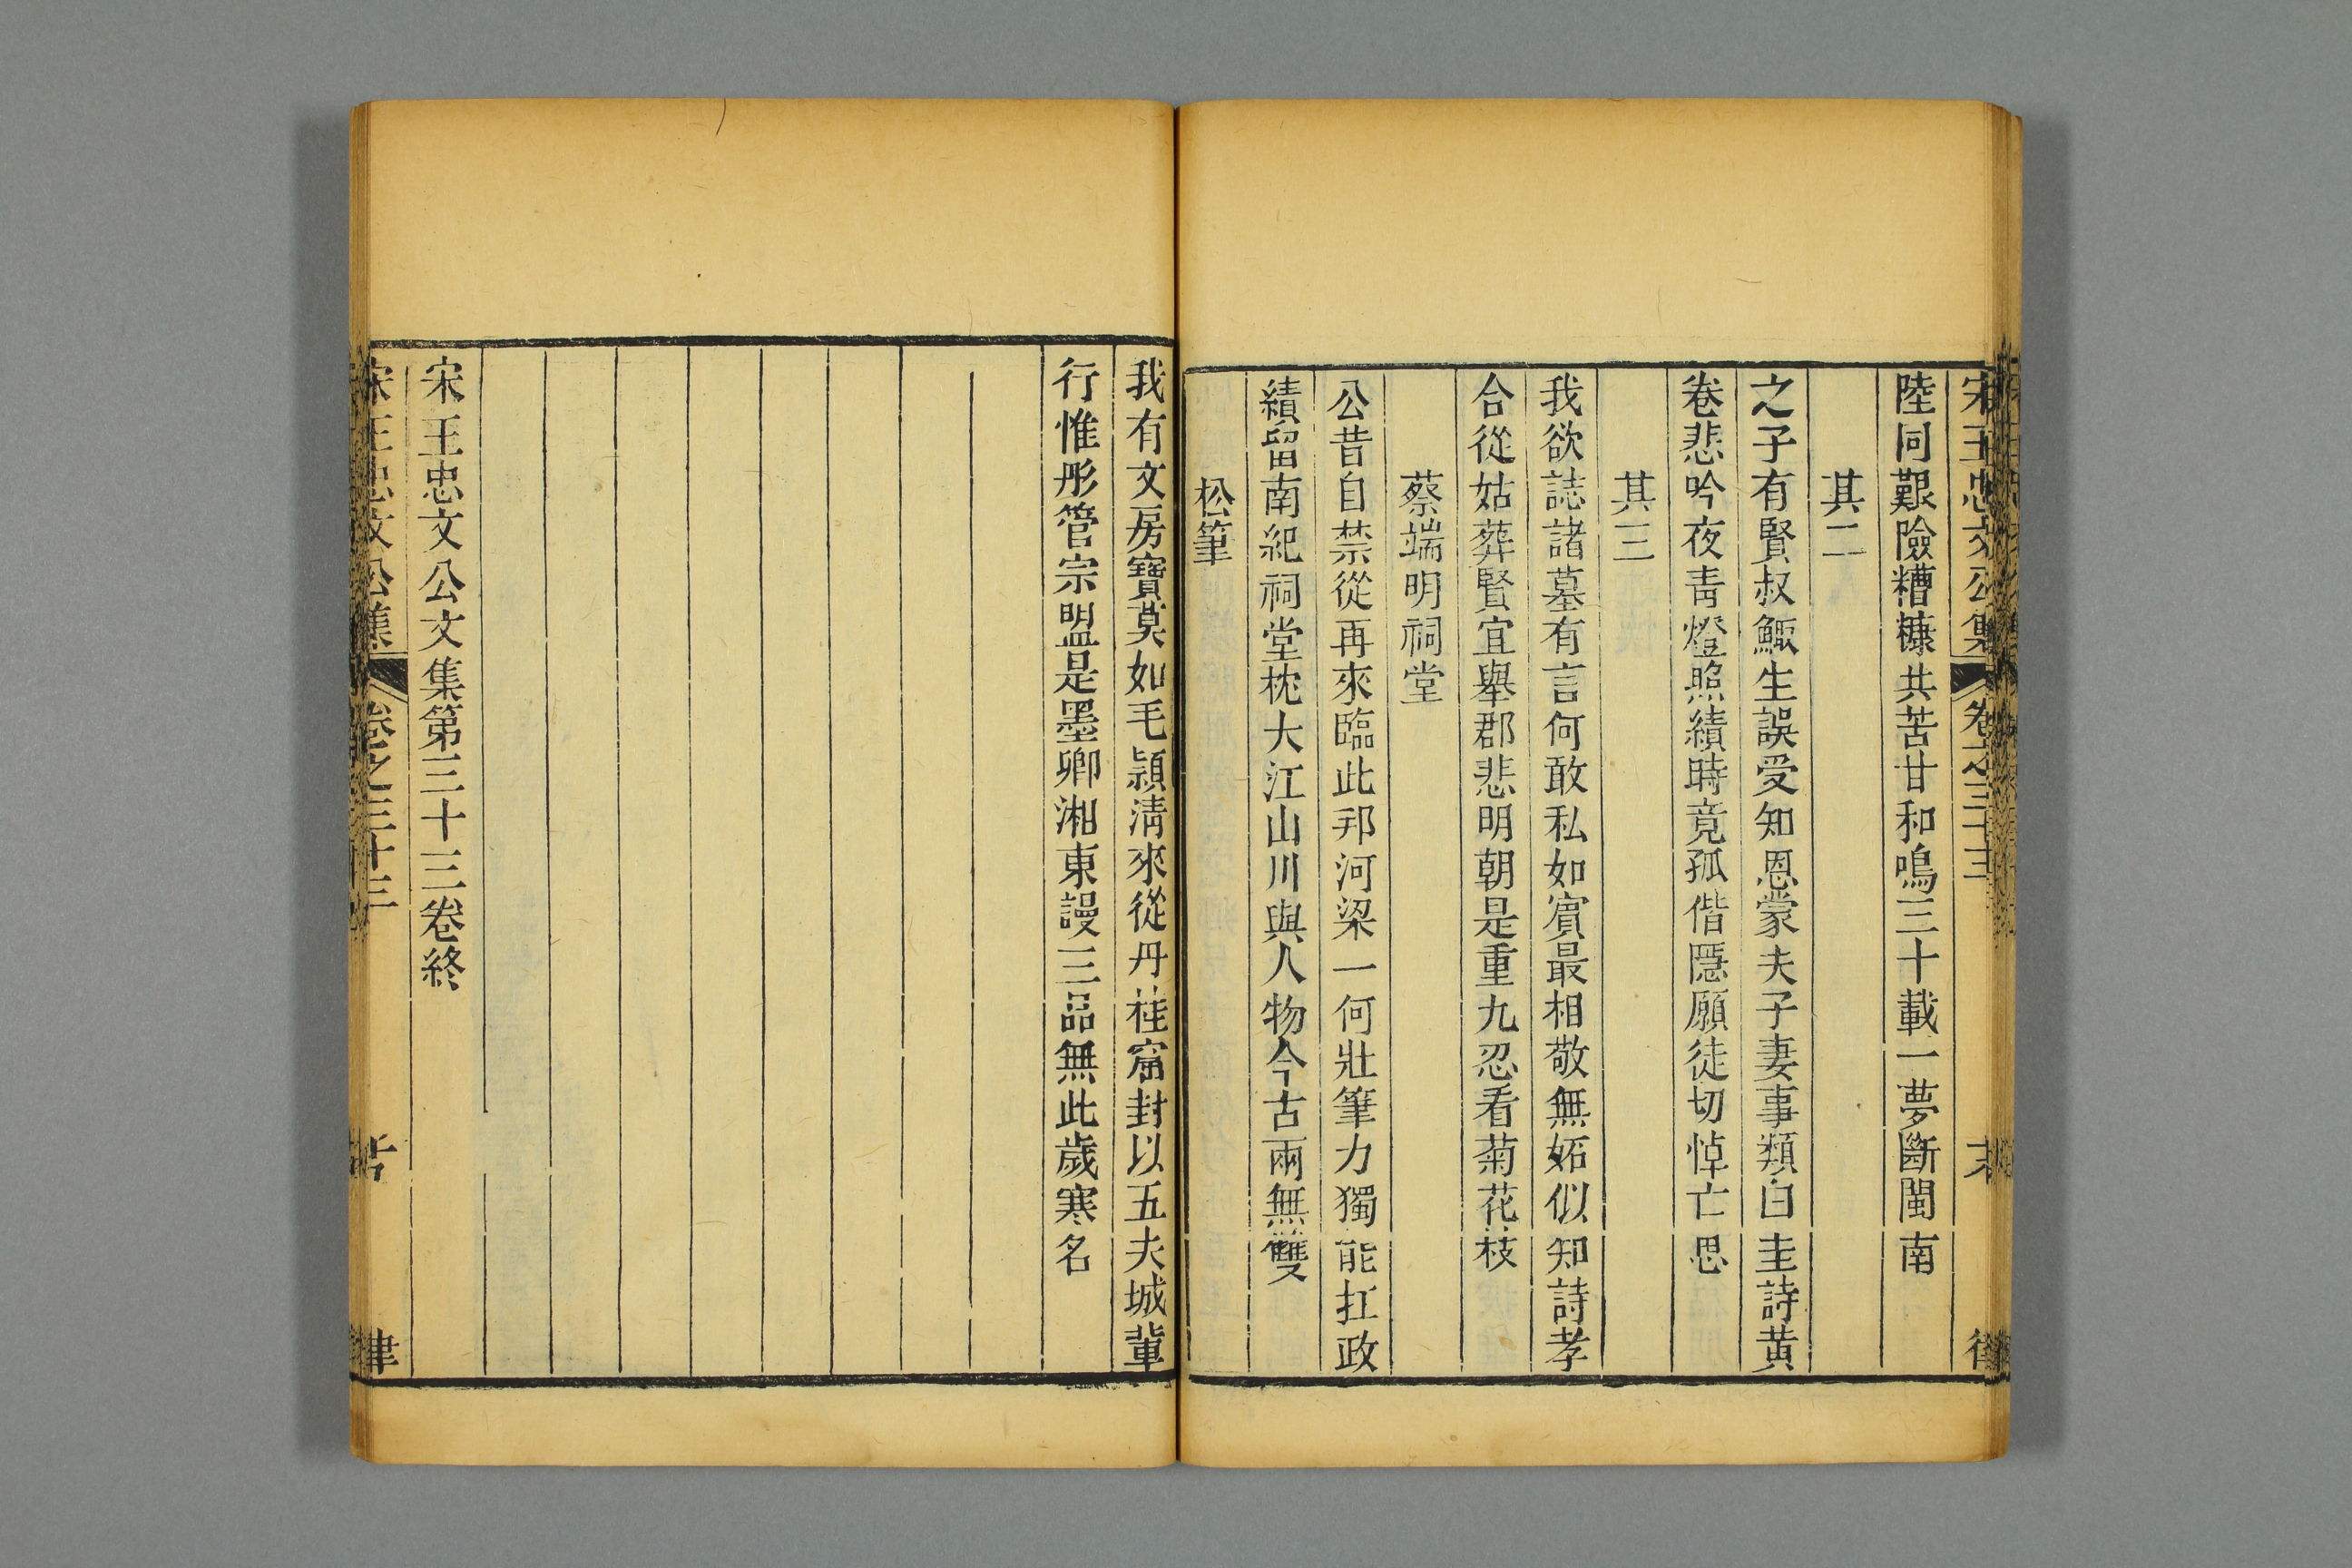 陸同艱險糟糠共苦甘和鳴三十載一夢斷閩南
其二
之子有賢叔鯫生誤受知恩蒙夫子妻事類白圭詩黄
卷悲吟夜靑燈照績時竟孤偕隱願徒切悼亡思
其三
我欲誌諸墓有言何敢私如賓最相敬無妬似知詩孝
合從姑葬賢宜舉郡悲明朝是重九忍看菊花枝
蔡端明祠堂
公昔自禁從再來臨此邦河梁一何壯筆力獨能扛政
績留南紀祠堂枕大江山川與人物今古兩無雙
松筆
我有文房寶莫如毛頴淸來從丹桂窟封以五夫城輩
行惟彤管宗盟是墨卿湘東謾三品無此歲寒名
宋王忠文公文集第三十三卷終
宋王忠文公集
卷之三十三